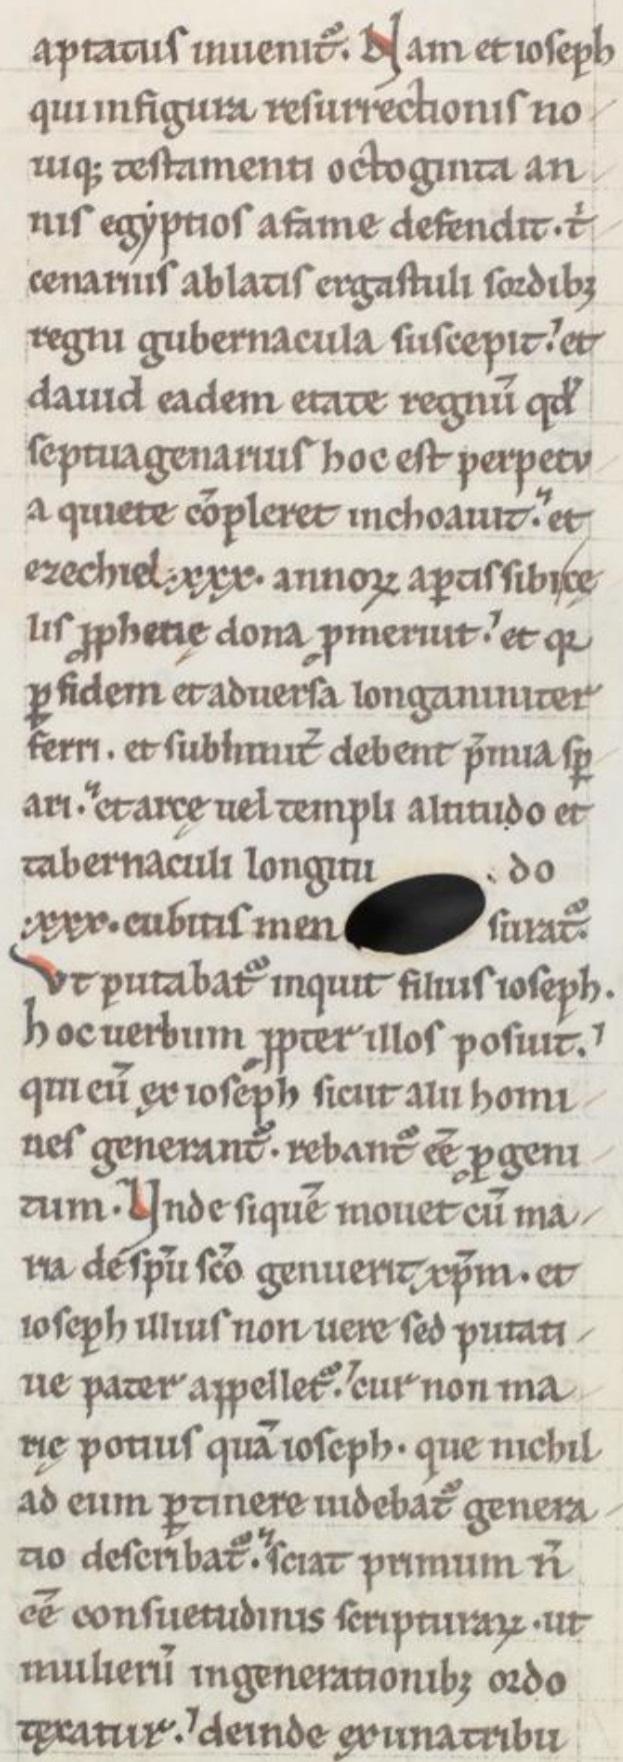 aptatus inuenit᷑. Nam et ioseph
qui in figura resurrectionis no
uiq; testamenti octoginta an
nis egẏptios a fame defendit · t̓
cenarius ablatis ergastuli sordibꝫ
regni gubernacula suscepit. et
dauid eadem etate regnū qd̓
septuagenarius hoc est perpetu
a quiete cōpleret inchoauit. et
ezechiel .xxx. annoꝝ aꝑtis sibi cę
lis ꝓphetię dona ꝓmeruit. et qꝛ
ꝑ fidem et aduersa longanimiter
ferri . et sublimit̄ debent p̄mia sꝑ
ari. et arcę uel templi altitudo et
tabernaculi longitu do
.xxx. cubitis men surat᷑.
Vt putabat᷑ inquit filius ioseph.
hoc uerbum ꝓpter illos posuit.
qui eū ex ioseph sicut alii homi
nes generant᷑. rebant᷑ eē ꝓgeni
tum. Unde siquē mouet cū ma
ria de sp̄u sc̄o genuerit xp̄m . et
ioseph illius non uere sed putati
ue pater appellet᷑. cur non ma
rię potius quā ioseph . que nichil
ad eum ꝑtinere uidebat᷑ genera
tio describat᷑. sciat primum n̄
eē consuetudinis scripturaꝝ . ut
mulierū in generationibꝫ ordo
texatur. deinde ex una tribu